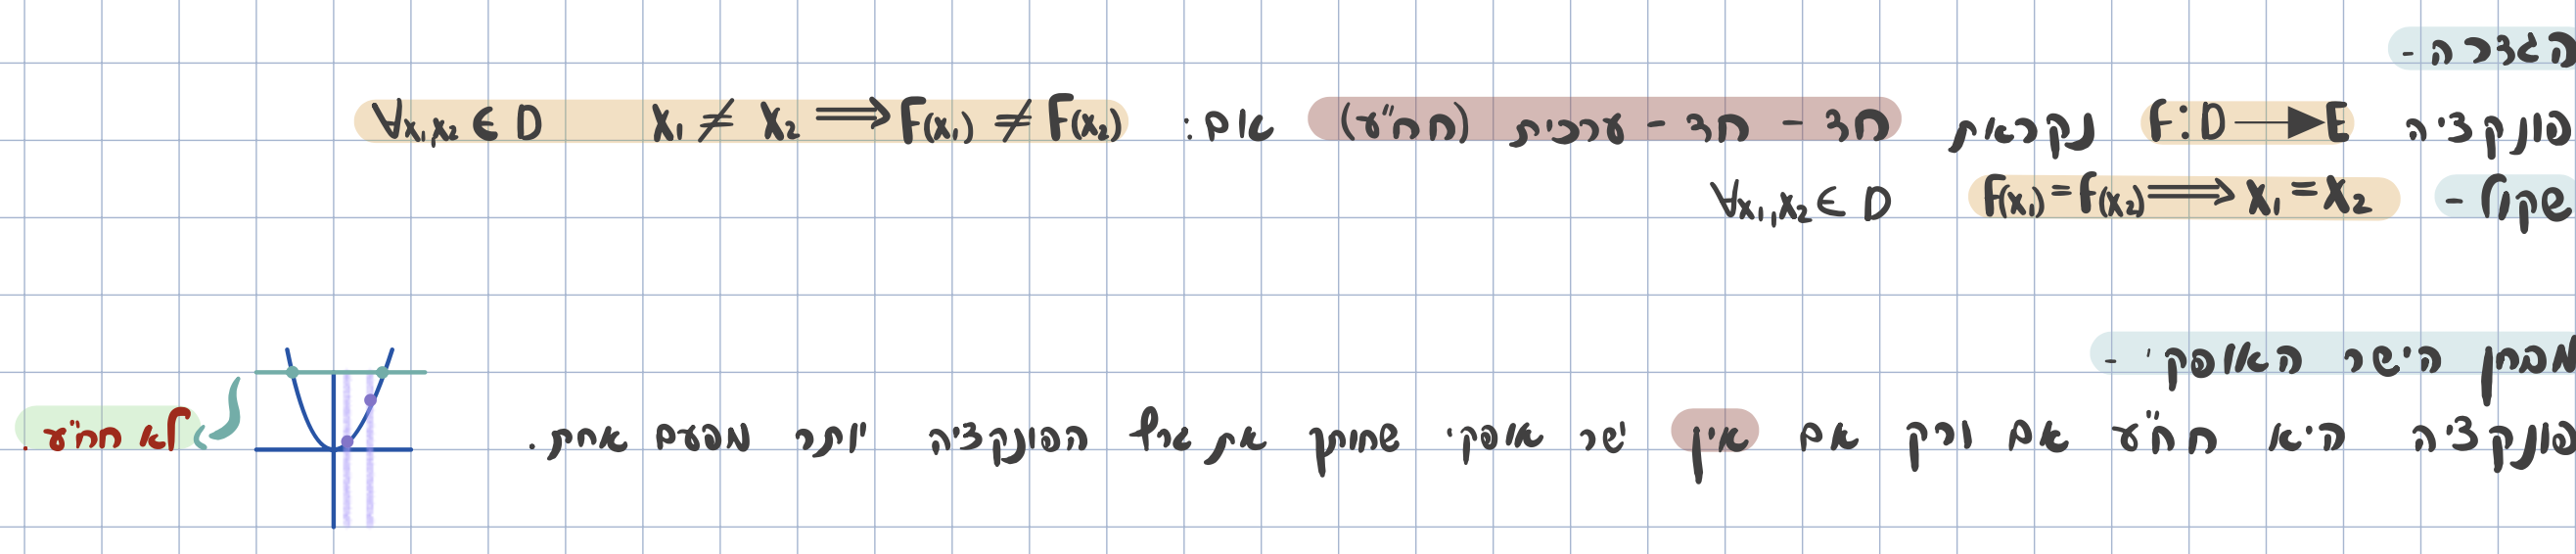 הגדרה -
פונקציה F:D→E נקראת חד - חד - ערכית (חח"ע) אם: ∀x₁,x₂ ∈ D x₁ ≠ x₂ ⟹ F(x₁) ≠ F(x₂)
שקול - F(x₁) = F(x₂) ⟹ x₁ = x₂ ∀x₁,x₂ ∈ D
מבחן הישר האופקי -
פונקציה היא חח"ע אם ורק אם אין ישר אופקי שחותך את גרף הפונקציה יותר מפעם אחת.
לא חח"ע.